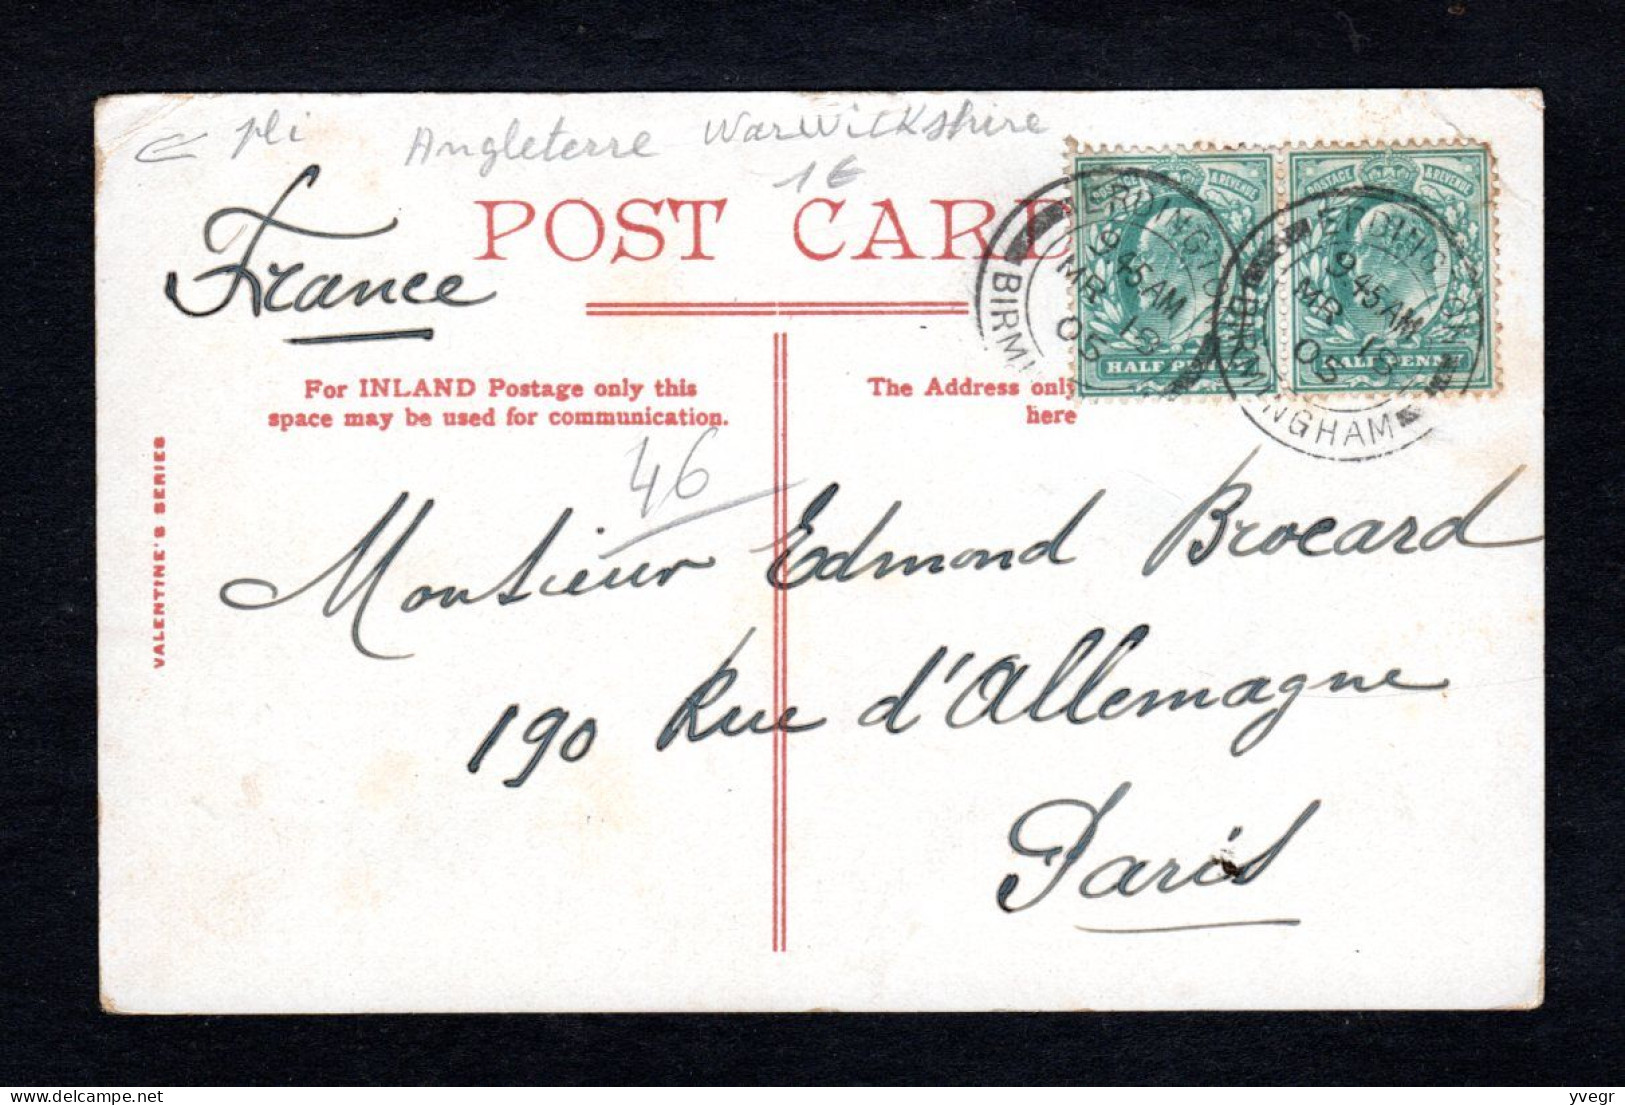 pli
Angleterre Warwickshire
1€
France
POST CARD
For INLAND Postage only this
space may be used for communication.
The Address only
here
POSTAGE & REVENUE
HALF PENNY
POSTAGE & REVENUE
HALF PENNY
ERDINGTON
9 45 AM
MR 18
05
BIRMINGHAM
ERDINGTON
9 45 AM
MR 18
05
BIRMINGHAM
46
VALENTINE'S SERIES
Monsieur Edmond Brocard
190 Rue d'Allemagne
Paris
yvegr